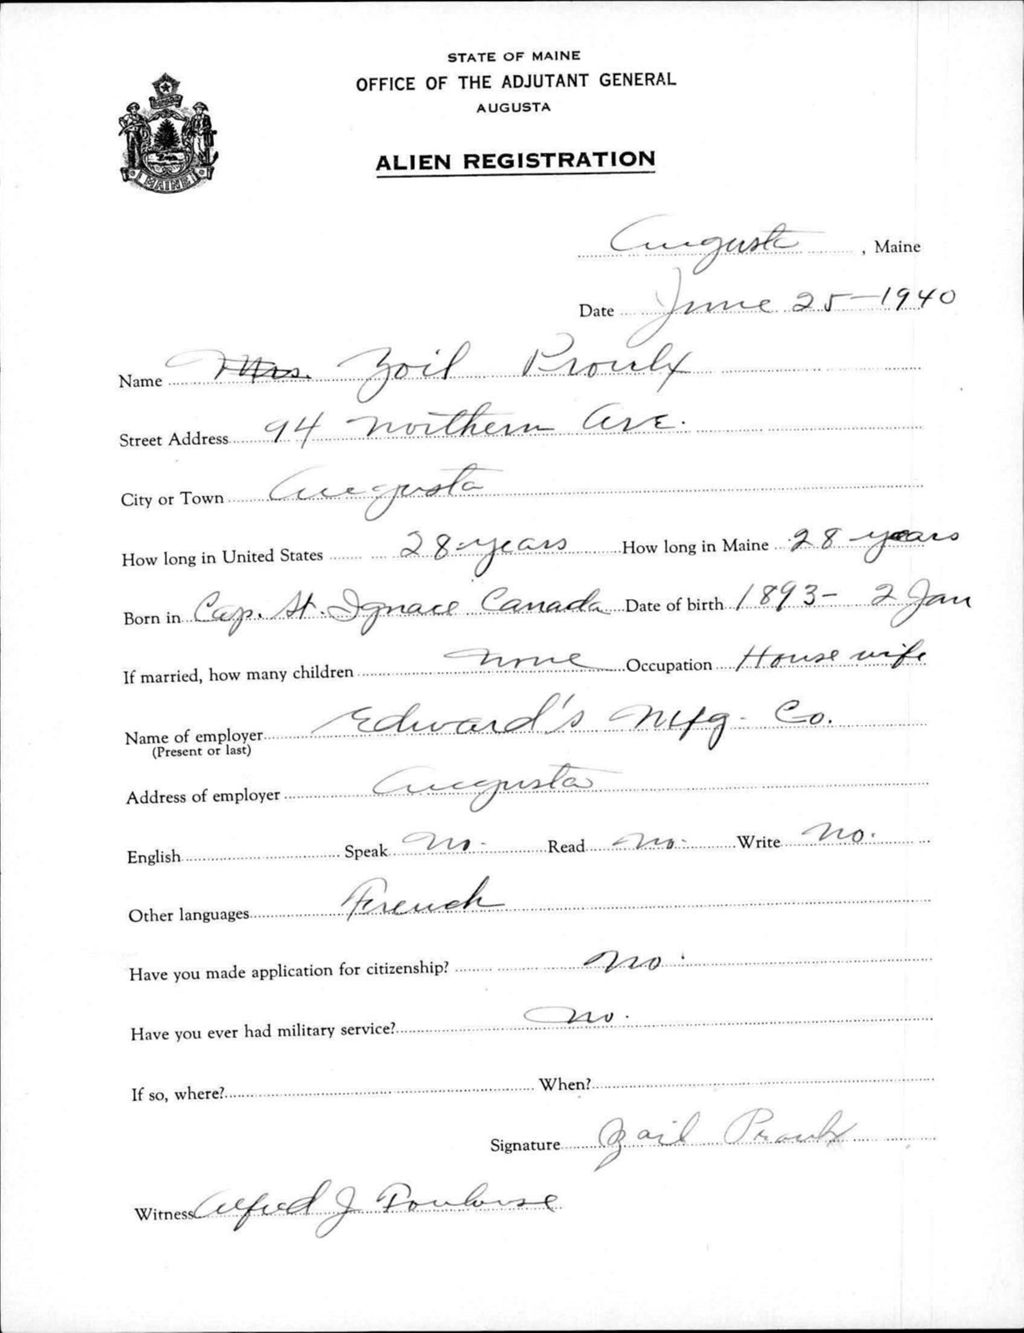 STATE OF MAINE
OFFICE OF THE ADJUTANT GENERAL
AUGUSTA
MAINE
ALIEN REGISTRATION
Augusta, Maine
Date June 25-1940
Name Mrs. Zoil Proulx
Street Address 94 Northern Ave.
City or Town Augusta
How long in United States 28-years How long in Maine 28-years
Born in Cap. St. Ignace Canada Date of birth 1893- 2 Jan
If married, how many children None Occupation House wife
Name of employer Edward's Mfg. Co.
(Present or last)
Address of employer Augusta
English Speak No. Read No. Write No.
Other languages French
Have you made application for citizenship? No.
Have you ever had military service? No.
If so, where? When?
Signature Zoil Proulx
Witness Alfred J Toulouse